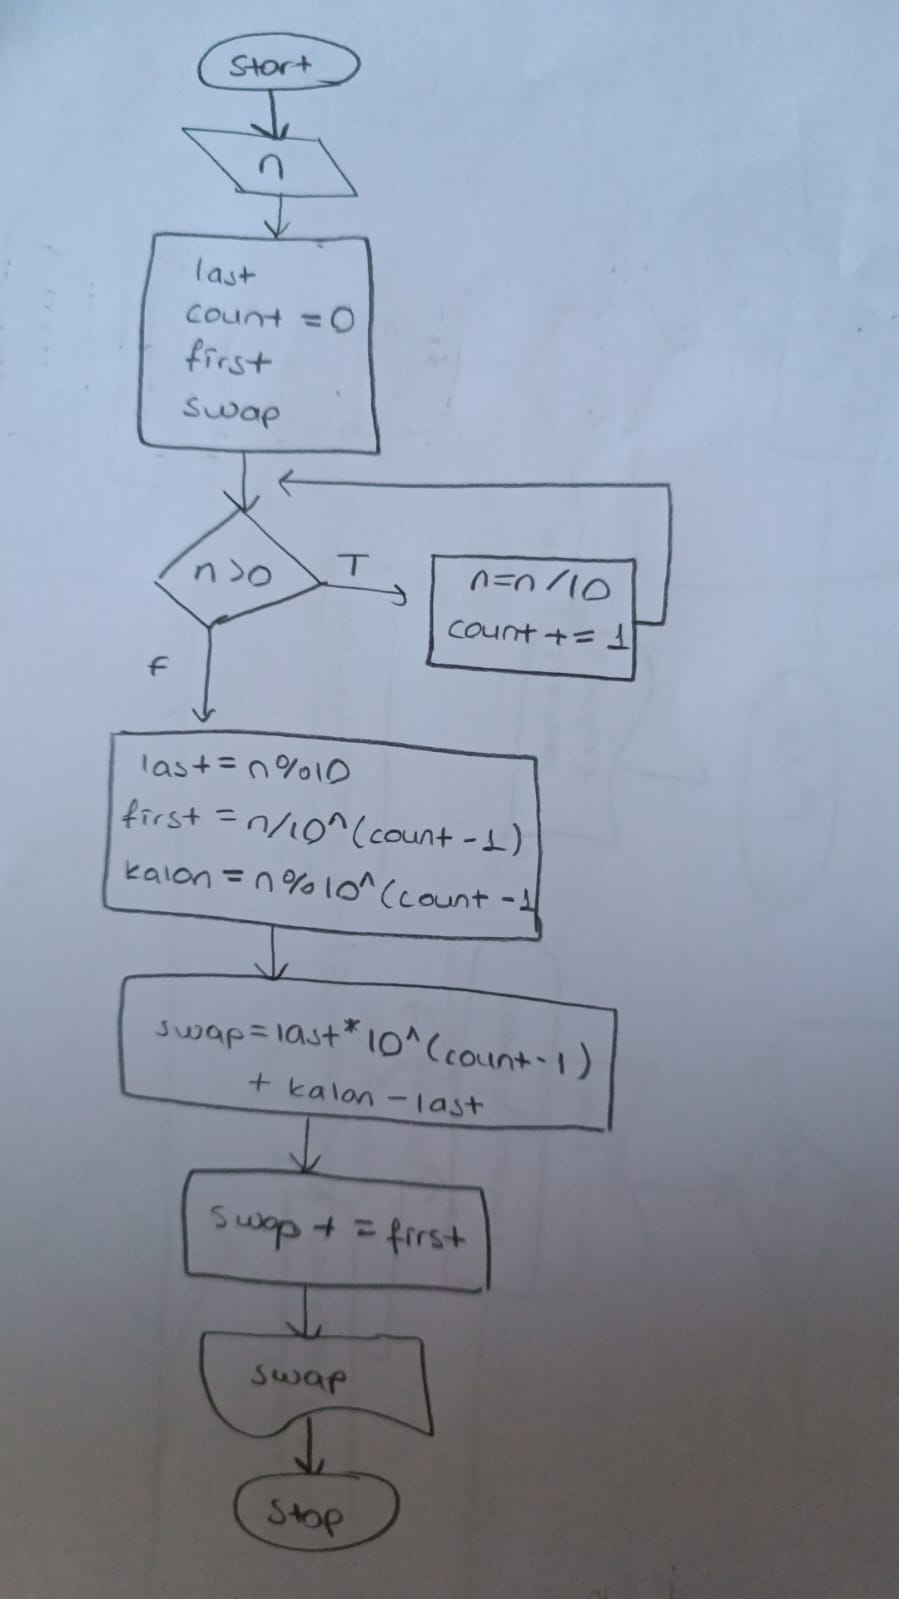 Start
n
last
count = 0
first
swap
n>0
T
n=n/10
count += 1
F
last = n%10
first = n/10^(count-1)
kalan = n%10^(count-1
swap=last*10^(count-1)
+ kalan - last
swap += first
swap
Stop